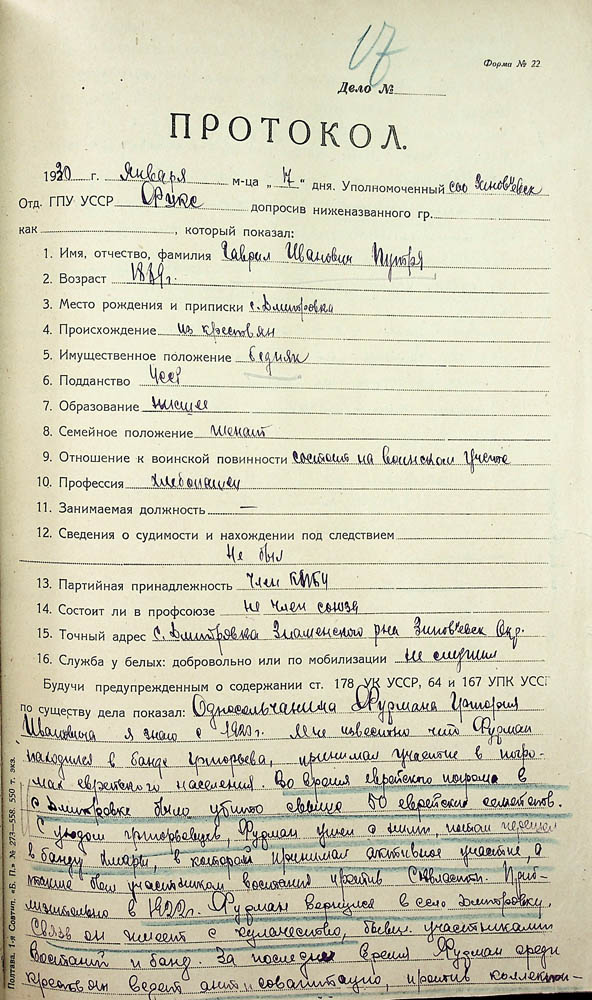 17
Форма № 22
Дело №
ПРОТОКОЛ.
1930 г. Января м-ца „7“ дня. Уполномоченный
Отд. ГПУ УССР Фукс допросив ниженазванного гр.
как , который показал:
1. Имя, отчество, фамилия Гаврил Иванович
2. Возраст
3. Место рождения и приписки с. Дмитровка
4. Происхождение из крестьян
5. Имущественное положение бедняк
6. Подданство УССР
7. Образование низшее
8. Семейное положение женат
9. Отношение к воинской повинности состоит на воинском учете
10. Профессия хлебопашец
11. Занимаемая должность —
12. Сведения о судимости и нахождении под следствием
Не был
13. Партийная принадлежность член
14. Состоит ли в профсоюзе не член союза
15. Точный адрес с. Дмитровка Знаменского р-на Зиновьевск Окр.
16. Служба у белых: добровольно или по мобилизации не служил
Будучи предупрежденным о содержании ст. 178 УК УССР, 64 и 167 УПК УССР
по существу дела показал: Односельчанина Фурмана Григория
Ивановича я знаю с Мне известно что Фурман
находился в банде Григорьева, принимал участие в погро-
мах еврейского населения. Во время еврейского погрома в
с Дмитровке было убито свыше 50 еврейских семейств.
С уходом григорьевцев, Фурман ушел с ними, потом перешел
в банду в которой принимал активное участие, а
также был участником восстания против Соввласти. Приб-
лизительно в 1922 г. Фурман вернулся в село Дмитровку.
Связь он имеет с кулачеством, бывш. участниками
восстаний и банд. За последнее время Фурман среди
крестьян ведет антисовагитацию, против коллекти-
Полтава, 1-я Совтип. «Б. П.» № 273—558. 550 т. экз.